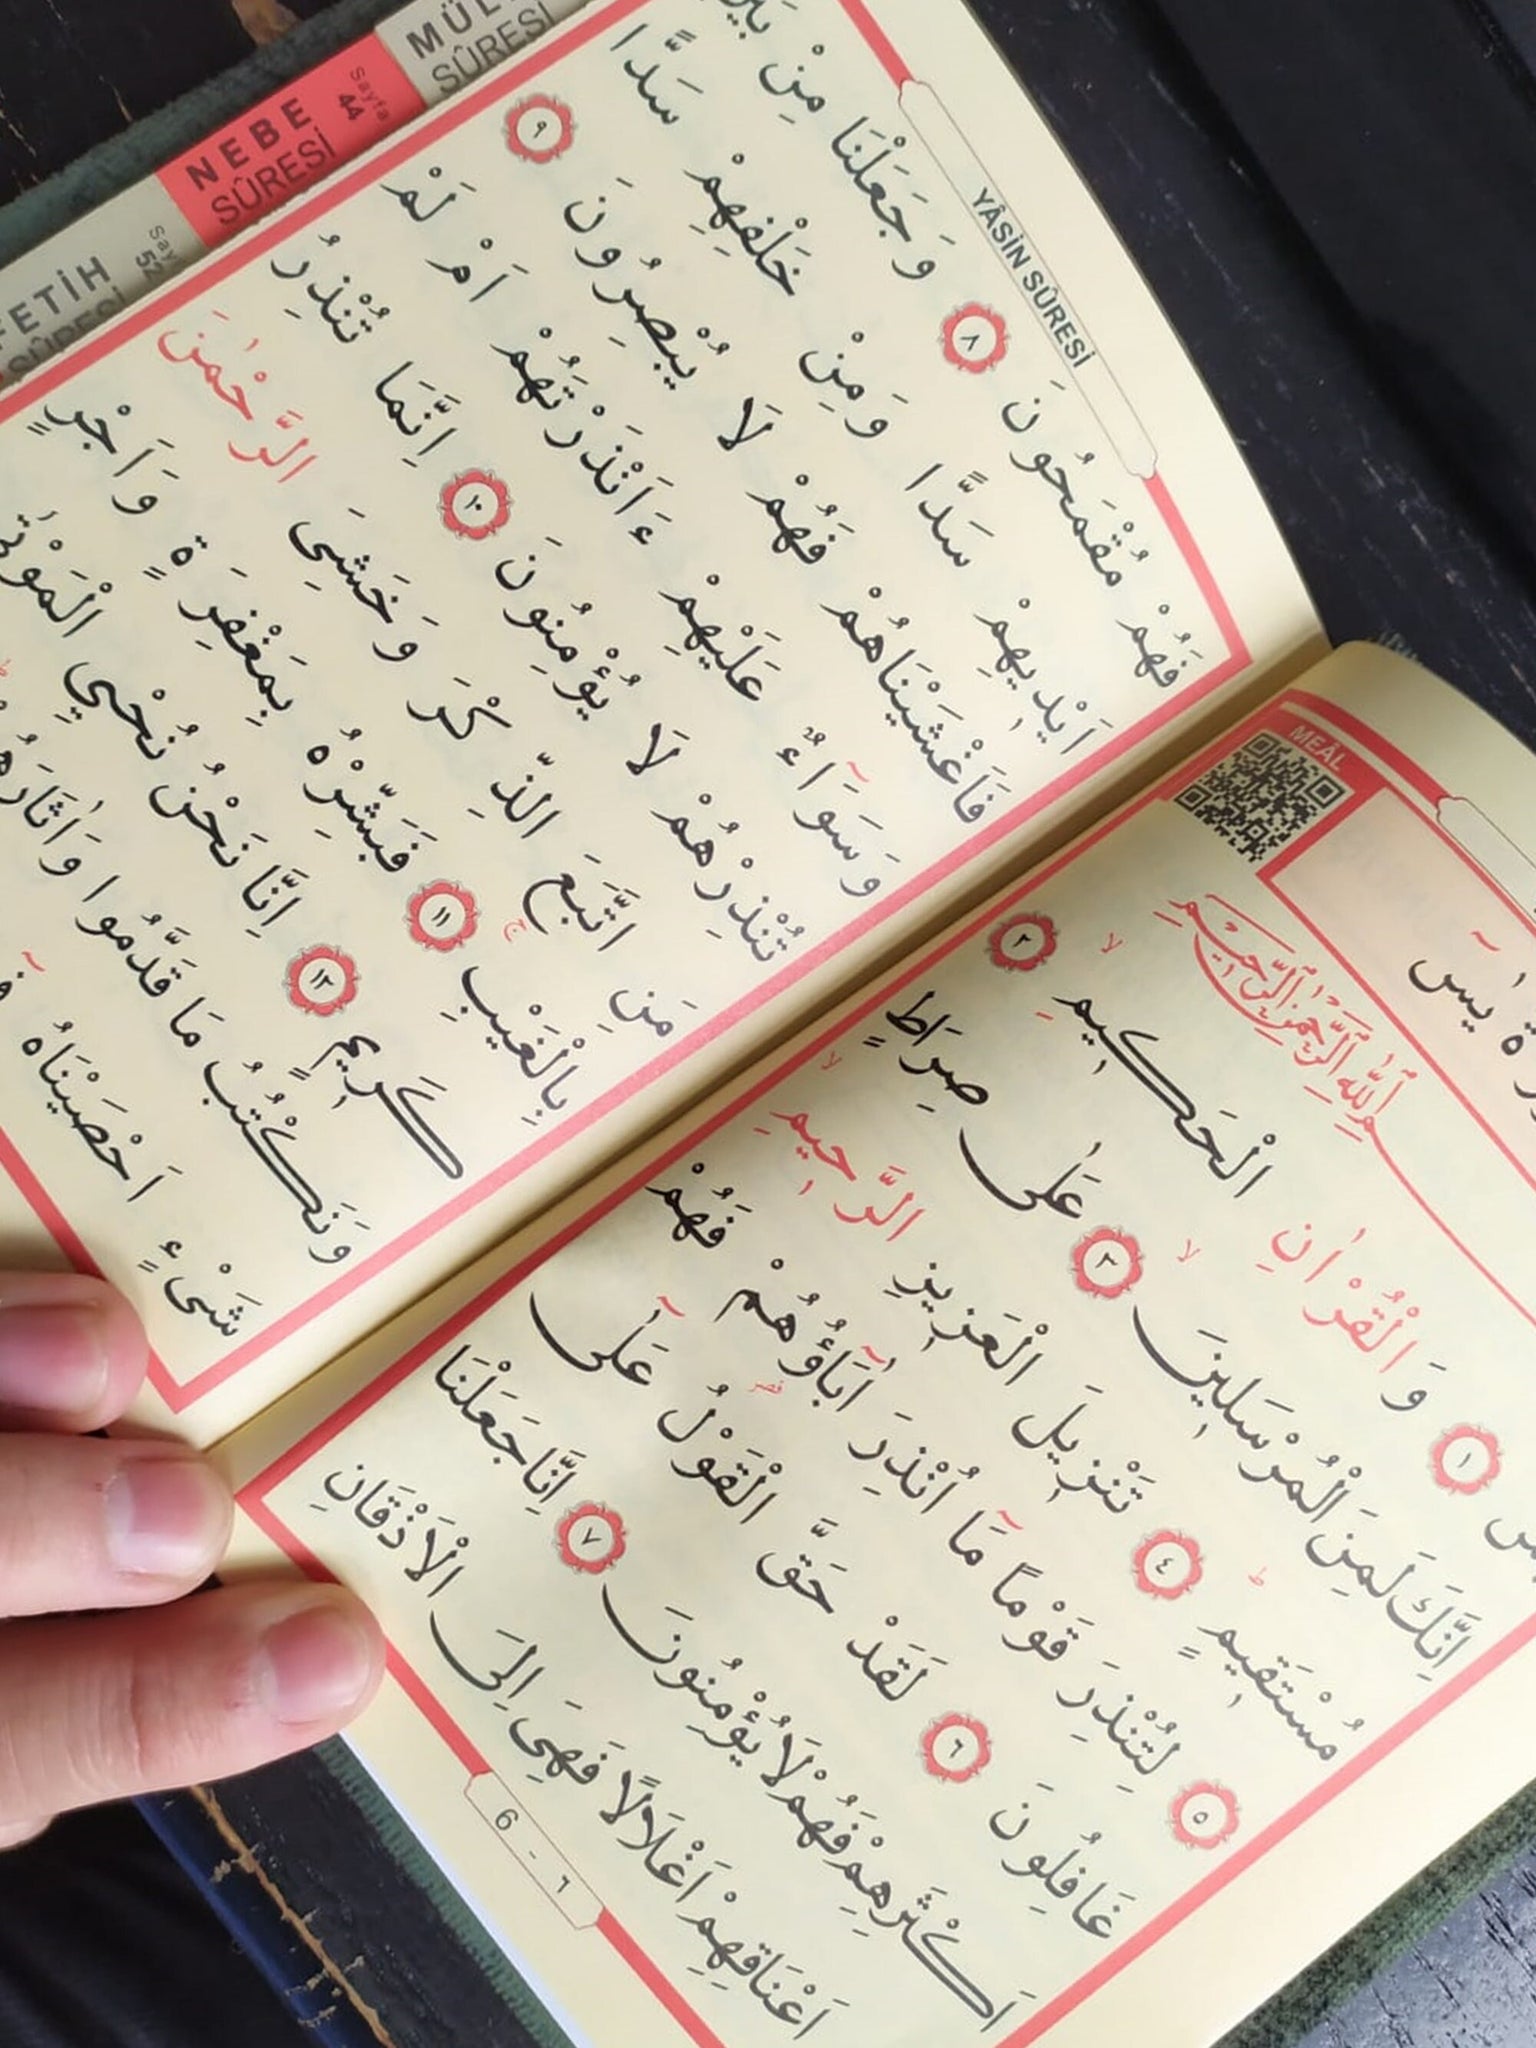 MEÂL
يٰسٓ
اللّٰهِ الرَّحْمٰنِ الرَّحِيمِ
١ وَالْقُرْاٰنِ الْحَكِيمِ ٢
اِنَّكَ لَمِنَ الْمُرْسَلِينَ ٣ عَلٰى صِرَاطٍ
مُسْتَقِيمٍ ٤ تَنْزِيلَ الْعَزِيزِ الرَّحِيمِ
٥ لِتُنْذِرَ قَوْماً مَٓا اُنْذِرَ اٰبَٓاؤُهُمْ فَهُمْ
غَافِلُونَ ٦ لَقَدْ حَقَّ الْقَوْلُ عَلٰٓى
اَكْثَرِهِمْ فَهُمْ لَا يُؤْمِنُونَ ٧ اِنَّا جَعَلْنَا
اَعْنَاقِهِمْ اَغْلَالاً فَهِيَ اِلَى الْاَذْقَانِ
6 - ٦
YÂSİN SÛRESİ
فَهُمْ مُقْمَحُونَ ٨ وَجَعَلْنَا مِنْ
اَيْدِيهِمْ سَدًّا وَمِنْ خَلْفِهِمْ سَدًّا
فَاَغْشَيْنَاهُمْ فَهُمْ لَا يُبْصِرُونَ ٩
وَسَوَٓاءٌ عَلَيْهِمْ ءَاَنْذَرْتَهُمْ اَمْ لَمْ
تُنْذِرْهُمْ لَا يُؤْمِنُونَ ١٠ اِنَّمَا تُنْذِرُ
مَنِ اتَّبَعَ الذِّكْرَ وَخَشِيَ الرَّحْمٰنَ
بِالْغَيْبِ ١١ فَبَشِّرْهُ بِمَغْفِرَةٍ وَاَجْرٍ
كَرِيمٍ ١٢ اِنَّا نَحْنُ نُحْيِي الْمَوْتٰى
وَنَكْتُبُ مَا قَدَّمُوا وَاٰثَارَهُمْ
شَيْءٍ اَحْصَيْنَاهُ
NEBE SÛRESİ Sayfa 44
SÛRESİ
ETİH SÛRESİ 52